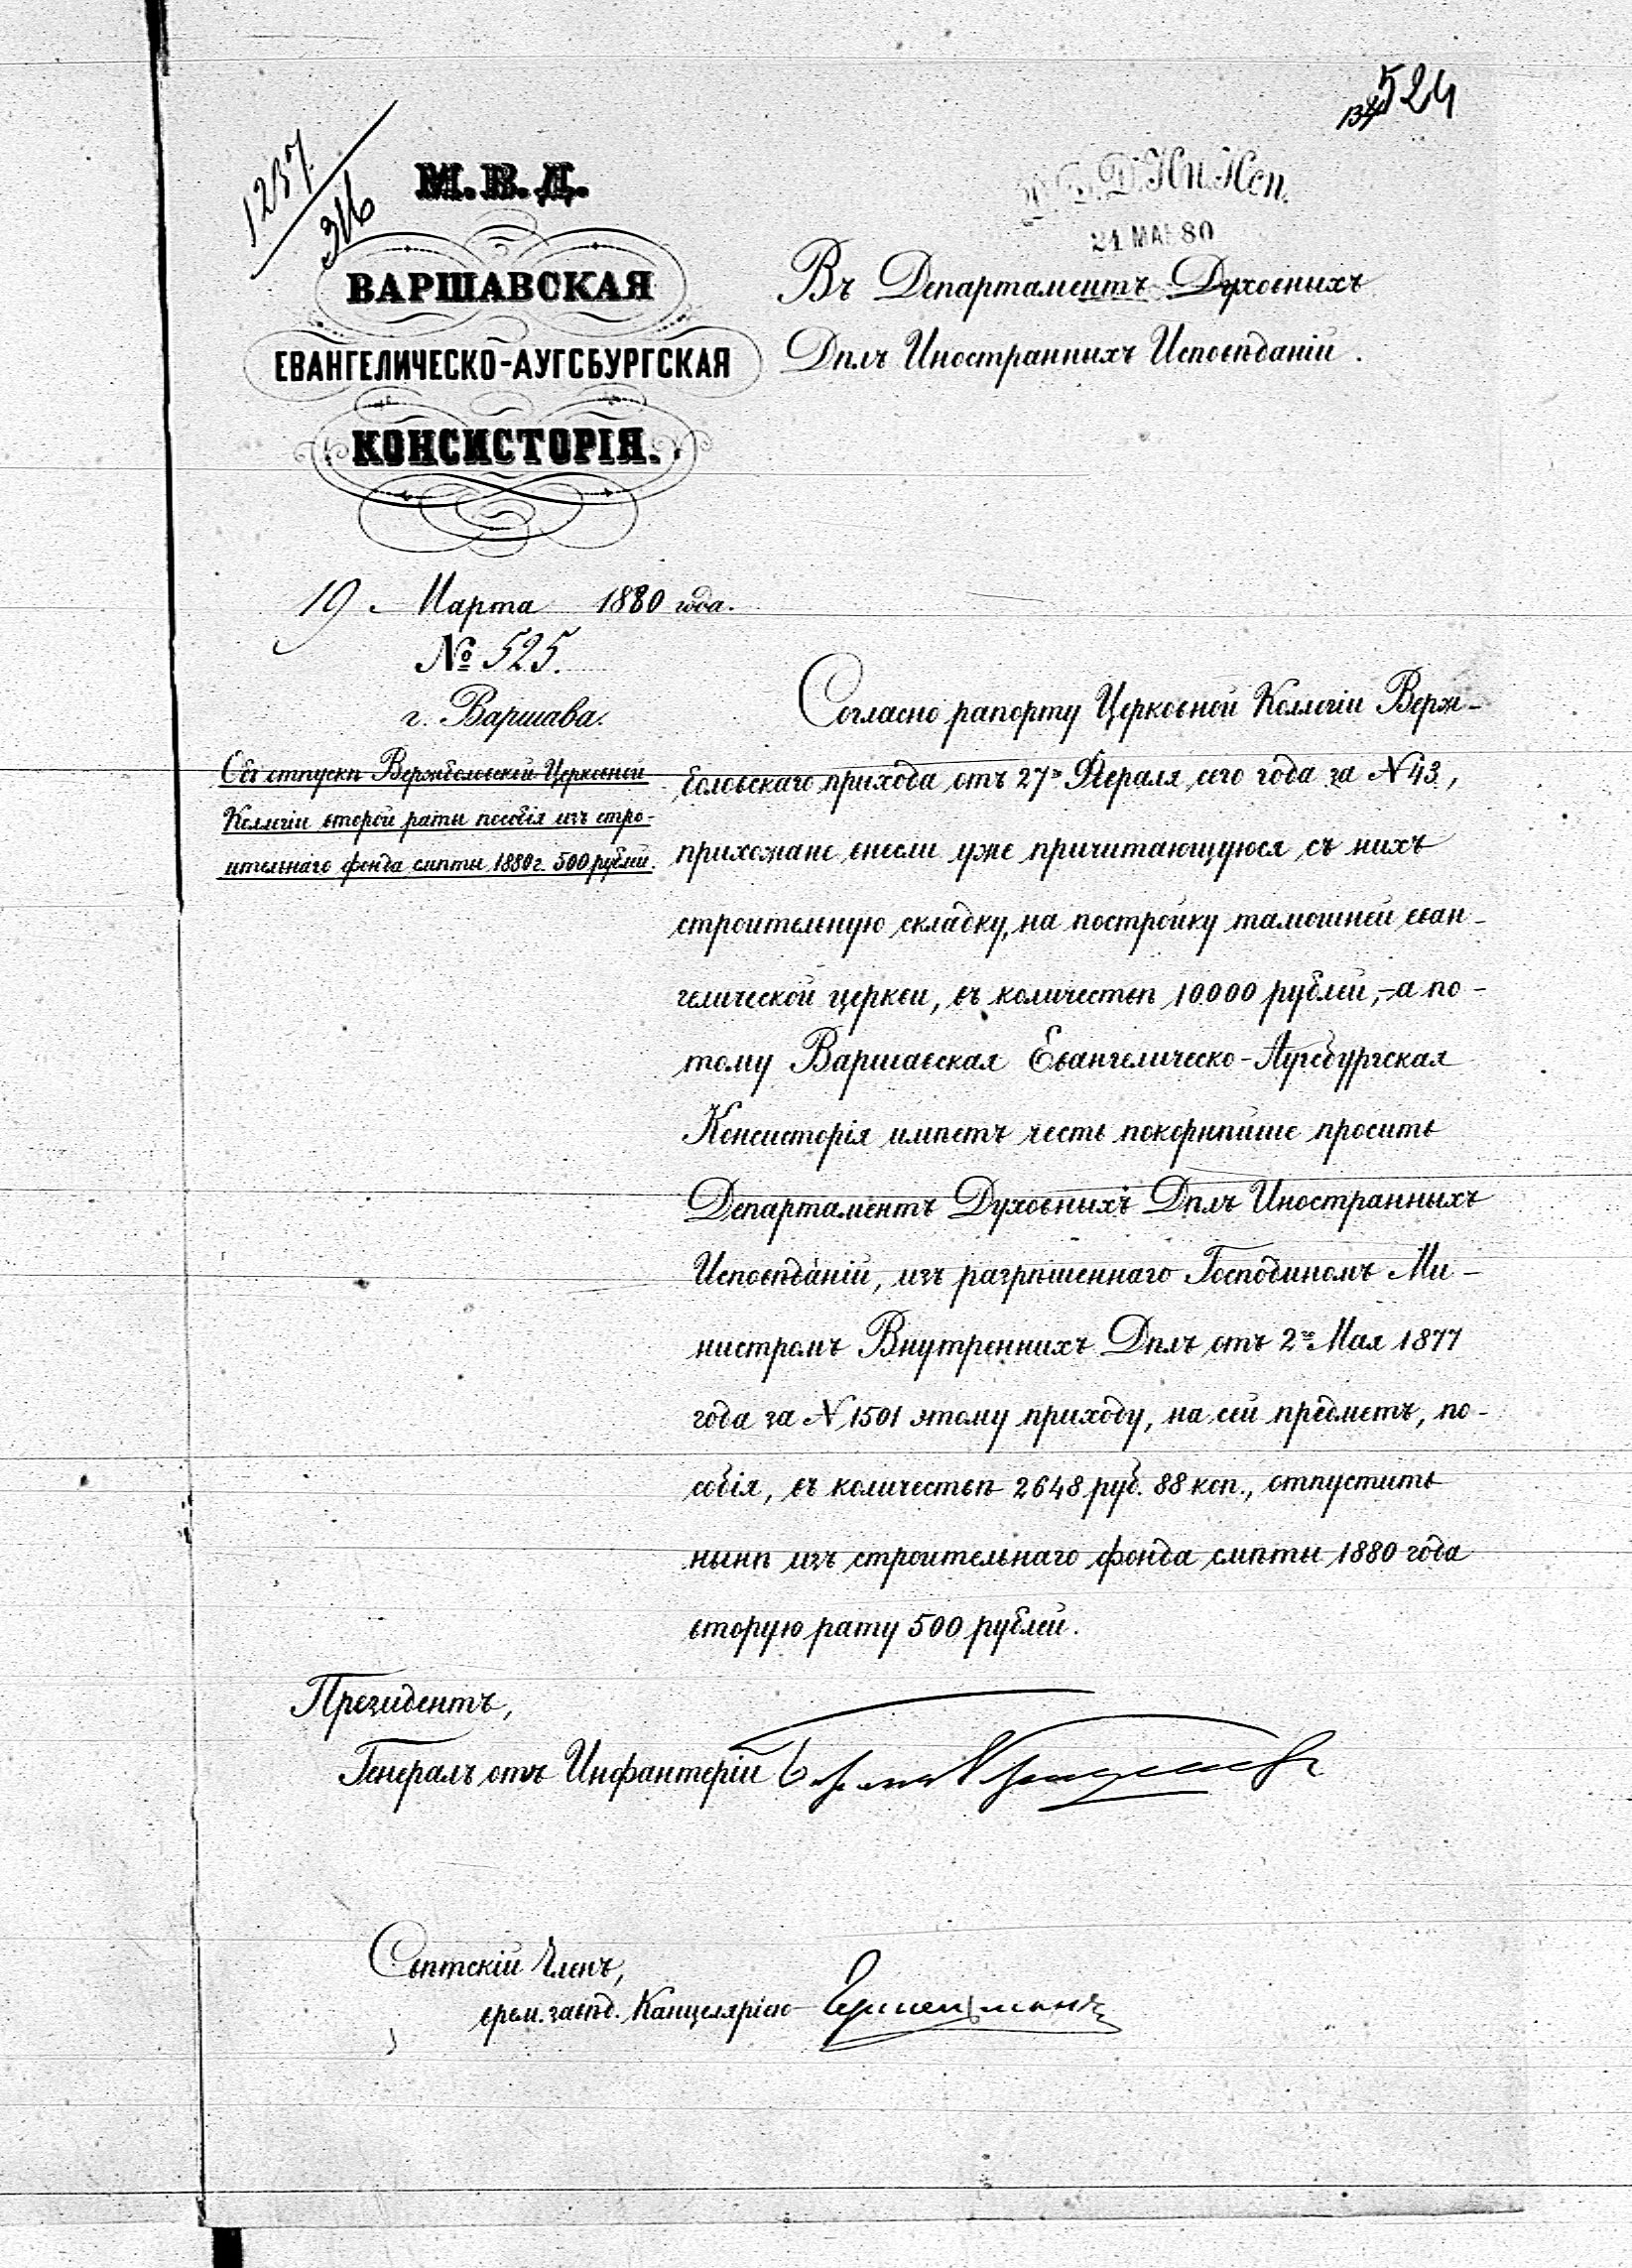 524
1237
316
М. В. Д.
ВАРШАВСКАЯ
ЕВАНГЕЛИЧЕСКО-АУГСБУРГСКАЯ
КОНСИСТОРІЯ.
Д. Ин. Исп.
21 МАР 80
Въ Департаментъ Духовныхъ
Дѣлъ Иностранныхъ Исповѣданій.
19 Марта 1880 года.
№ 525.
г. Варшава.
Объ отпускѣ Вержболовской Церковной
Коллегіи второй раты пособія изъ стро-
ительнаго фонда смѣты 1880 г. 500 рублей.
Согласно рапорту Церковной Коллегіи Верж-
боловскаго прихода отъ 27го Февраля сего года за N 43,
прихожане внесли уже причитающуюся съ нихъ
строительную складку, на постройку тамошней еван-
гелической церкви, въ количествѣ 10000 рублей,-а по-
тому Варшавская Евангелическо-Аугсбургская
Консисторія имѣетъ честь покорнѣйше просить
Департаментъ Духовныхъ Дѣлъ Иностранныхъ
Исповѣданій, изъ разрѣшеннаго Господиномъ Ми-
нистромъ Внутреннихъ Дѣлъ отъ 2го Мая 1877
года за N 1501 этому приходу, на сей предметъ, по-
собія, въ количествѣ 2648 руб. 88 коп., отпустить
нынѣ изъ строительнаго фонда смѣты 1880 года
вторую рату 500 рублей.
Президентъ,
Генералъ отъ Инфантеріи
Свѣтскій Членъ,
врем. завѣд. Канцеляріею